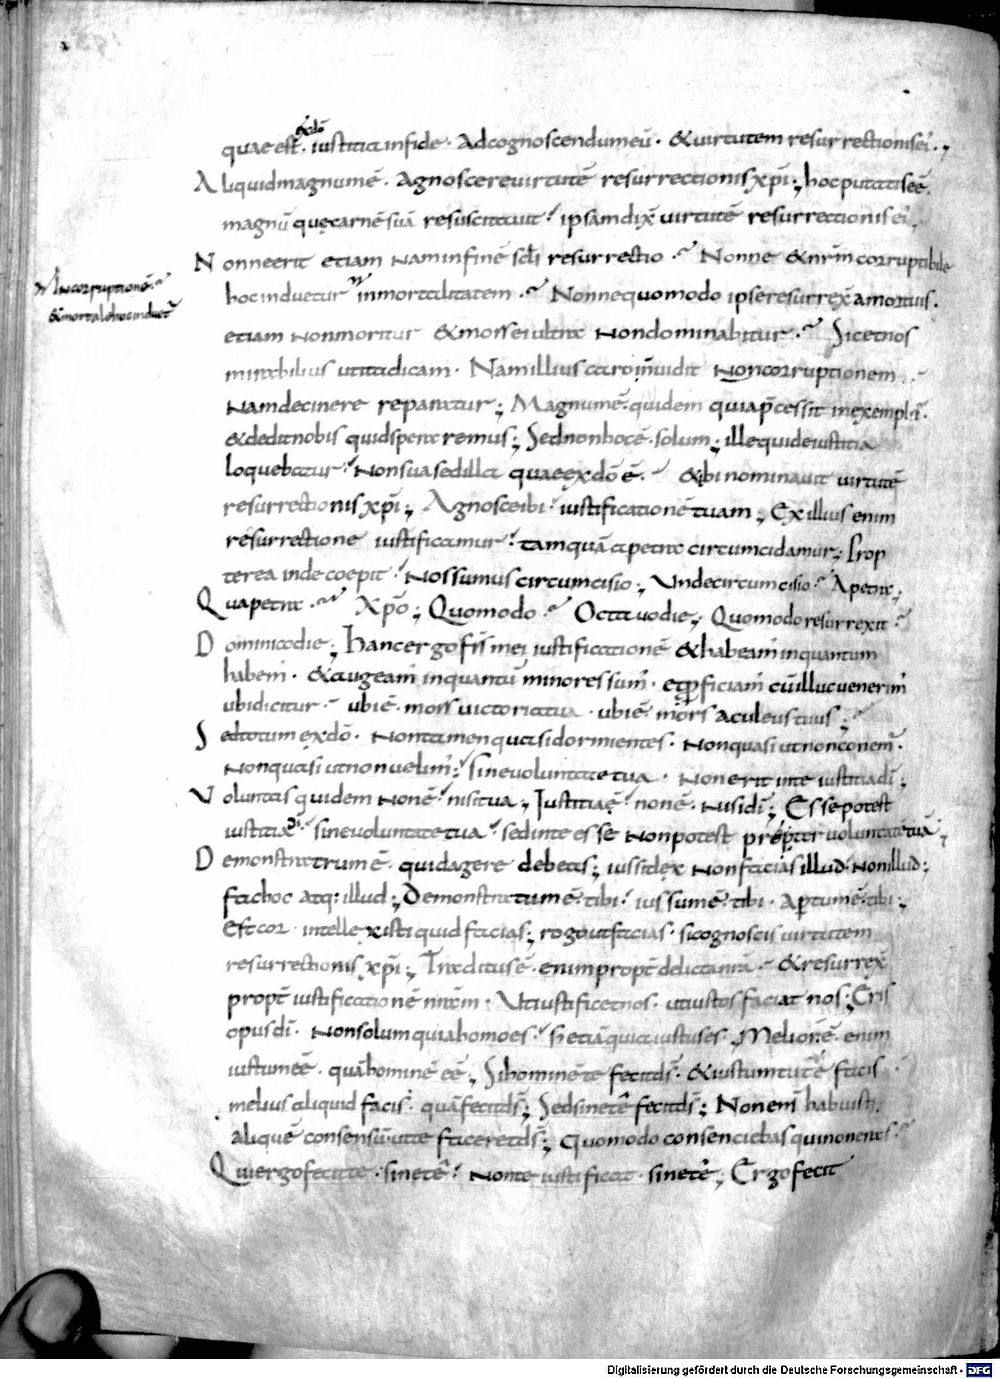 quae est ex dō iustitia in fide · Ad cognoscendum eū · & uirtutem resurrectionis ei ·,
Aliquid magnum ē · agnoscere uirtutē resurrectionis xp̄i ; hoc putatis eē
magnū quę carnē suā resuscitauit ? ipsam dix̄ uirtutē resurrectionis ei ,
Nonne erit etiam nam in finē sc̄i resurrectio · Nonne & nr̄m corruptibile
incorruptionē
& mortale hoc induet̄
hoc induetur inmortalitatem · Nonne quomodo ipse resurrex̄ a mortuis ·
etiam non moritur & mors ei ultra non dominabitur · Sicet nos
mirabilius ut ita dicam · Nam illius caro nuidit non corruptionem
nam de cinere reparatur ; Magnum ē quidem quia p̄cessit in exemplū ·
& dedit nobis quid speraremus ; Sed non hoc ē solum ; ille qui de iustitia
loquebatur non sua sed illa quae ex dō ē · & ibi nominauit uirtutē
resurrectionis xp̄i ; Agnosce ibi iustificationē tuam ; Ex illius enim
resurrectione iustificamur tamquā a petra circumcidamur ; Prop
terea inde coepit Nos sumus circumcisio ; Unde circumcisio A petra ;
Qua petra Xp̄o ; Quomodo Octauo die ; Quomodo resurrexit
Dominico die ; Hanc ergo frs̄ mei iustificationē & habeam̄ in quantum
habem̄ · & augeam̄ in quantū minores sum̄ · et perficiam̄ cū illuc uenerim̄
ubi dicitur · ubi ē mors uictoria tua · ubi ē mors aculeus tuus ;
Sed totum ex dō · non tamen quasi dormientes · non quasi ut non conem̄ ·
non quasi ut non uelim̄ ; sine uoluntate tua · non erit in te iustitia dī ;
Uoluntas quidem non ē nisi tua ; Iustitia ę non ē nisi dī ; Esse potest
iustitia di sine uoluntate tua sed in te esse non potest preter uoluntatē tuā ;
Demonstratrum ē quid agere debeas ; iussit lex non facias illud non illud ;
fac hoc atq: illud ; Demonstratum ē tibi iussum ē tibi · apertum ē tibi ;
Est cor intellexisti quid facias ; roga ut facias · si cognoscis uirtutem
resurrectionis xp̄i ; Traditus ē enim propt̄ delicta nr̄a · & resurrex̄
propt̄ iustificationē nr̄am · Ut iustificet nos · ut iustos faciat nos ; Eris
opus dī · non solum quia homo es s; etiā quia iustus es ; Melior ē enim
iustum eē quā hominē eē ; Si hominē te fecit ds̄ · & iustum tu tē facis
melius aliquid facis · quā fecit ds̄ ; Sed sine tē fecit ds̄ ; Non enī habuisti
aliquē consensū ut te faceret ds̄ ; Quomodo consenciebas qui non eras
Qui ergo fecit te sine tē non te iustificat sine tē ; Ergo fecit